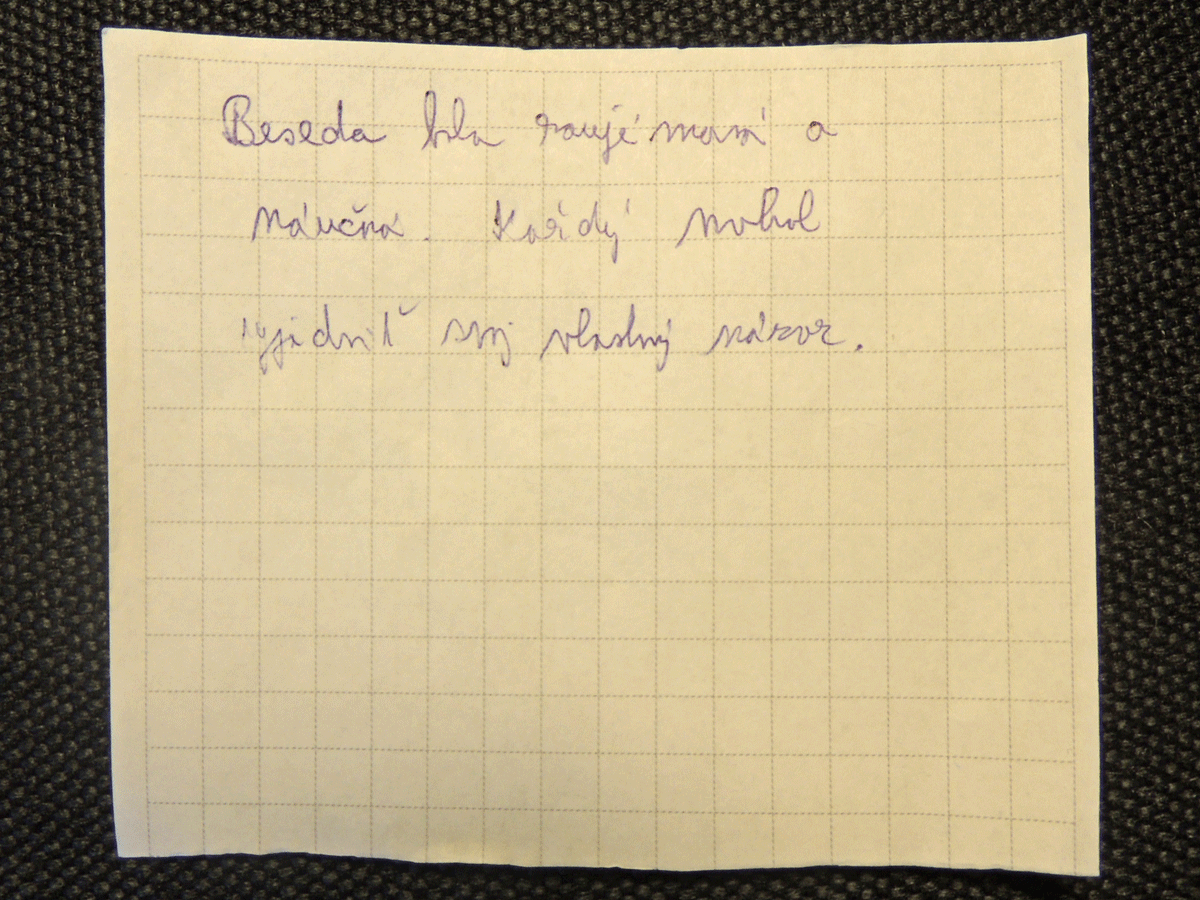 Beseda bola zaujímavá a
náučná. Každý mohol
vyjadriť svoj vlastný názor.